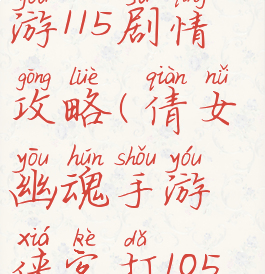 游115剧情
gōng lüè qiàn nǚ
攻略(倩女
yōu hún shǒu yóu
幽魂手游
xiá kè dǎ
侠客打105